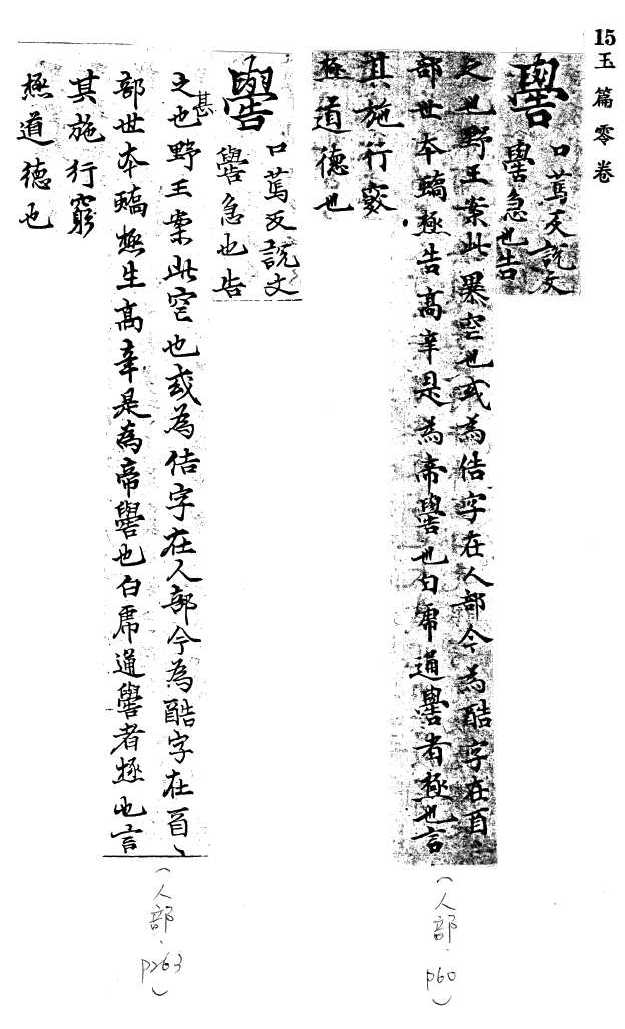 15玉篇零卷
嚳
口萬反說文
嚳急也告
之也野王案此暴空也或為佶字在人部今為酷字在百、
部世本蟜極告高辛是為帝嚳也白虎通嚳者極也言
其施行窮
極道德也
(人部.p60)
嚳
口萬反說文
嚳急也告
之甚也野王案此空也或為佶字在人部今為酷字在百、
部世本蟜極生高辛是為帝嚳也白虎通嚳者極也言
其施行窮
極道德也
(人部.p263)